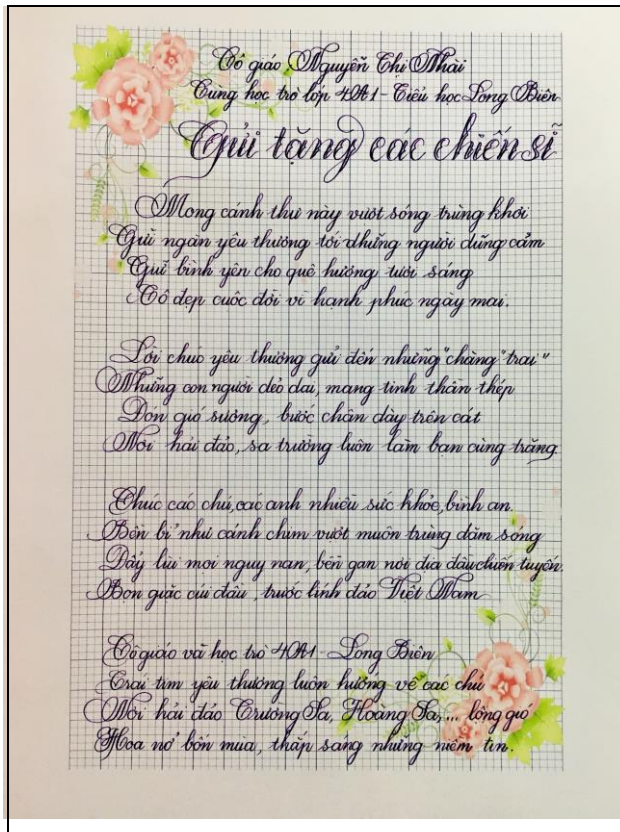 Cô giáo Nguyễn Thị Nhài
Cùng học trò lớp 4A1 - Tiểu học Long Biên
Gửi tặng các chiến sĩ
Mong cánh thư này vượt sóng trùng khơi
Gửi ngàn yêu thương tới những người dũng cảm
Gửi bình yên cho quê hương tươi sáng
Tô đẹp cuộc đời vì hạnh phúc ngày mai.
Lời chúc yêu thương gửi đến những "chàng "trai"
Những con người dẻo dai, mang tinh thần thép
Đón gió sương, bước chân dày trên cát
Nơi hải đảo, sa trường luôn làm bạn cùng trăng.
Chúc các chú, các anh nhiều sức khỏe, bình an.
Bền bỉ như cánh chim vượt muôn trùng dặm sóng
Đẩy lùi mọi nguy nan, bền gan nơi địa đầu chiến tuyến.
Bọn giặc cúi đầu, trước lính đảo Việt Nam
Cô giáo và học trò 4A1 - Long Biên
Trái tim yêu thương luôn hướng về các chú
Nơi hải đảo Trường Sa, Hoàng Sa,... lộng gió
Hoa nở bốn mùa, thắp sáng những niềm tin.